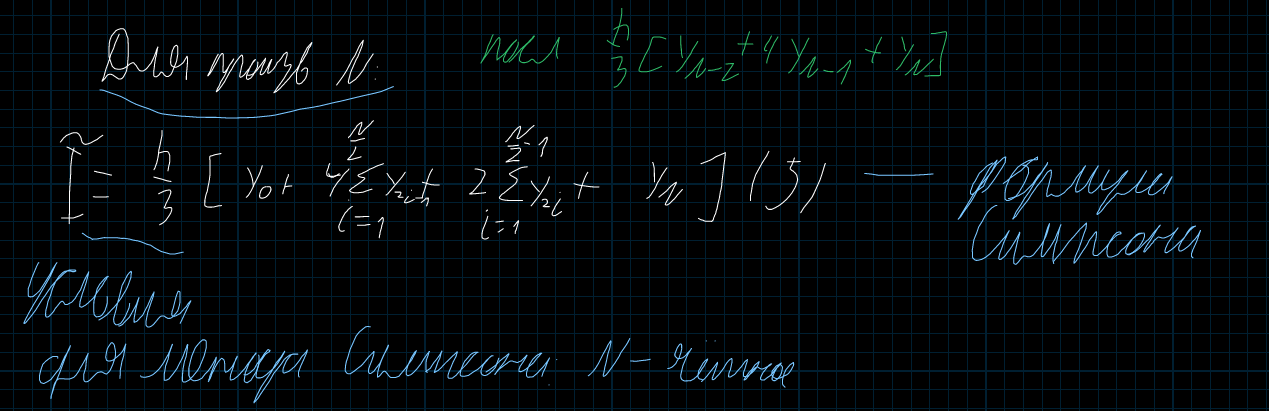 Для произв N:
посл h/3 [y_{N-2} + 4y_{N-1} + y_N]
Ĩ = h/3 [y_0 + 4 Σ_{i=1}^{N/2} y_{2i-1} + 2 Σ_{i=1}^{N/2-1} y_{2i} + y_N] (5) — формула
Симпсона
Условия
для метода Симпсона: N - чётное